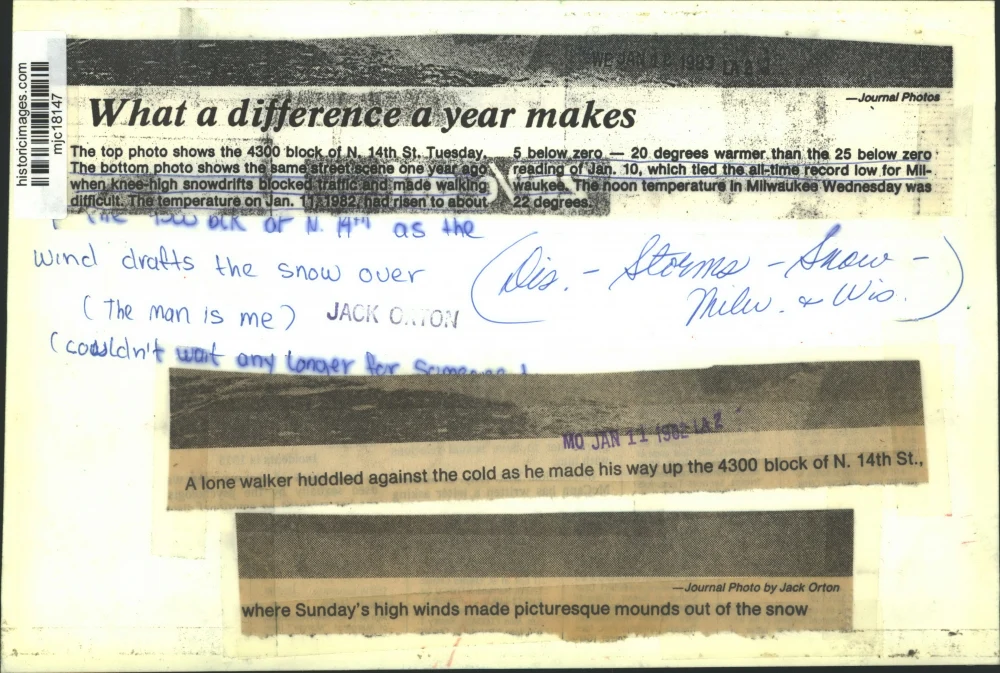 historicimages.com
mjc181147
WE JAN 12 1983 LAZ
—Journal Photos
What a difference a year makes
The top photo shows the 4300 block of N. 14th St. Tuesday.
The bottom photo shows the same street scene one year ago
when knee-high snowdrifts blocked traffic and made walking
difficult. The temperature on Jan. 11, 1982, had risen to about
5 below zero — 20 degrees warmer than the 25 below zero
reading of Jan. 10, which tied the all-time record low for Mil-
waukee. The noon temperature in Milwaukee Wednesday was
22 degrees.
of N. 14th as the
wind drafts the snow over
(The man is me) JACK ORTON
(couldn't wait any longer for someone
(Dis. - Storms - Snow -
Milw. & Wis.)
MO JAN 11 1982 LAZ
A lone walker huddled against the cold as he made his way up the 4300 block of N. 14th St.,
—Journal Photo by Jack Orton
where Sunday's high winds made picturesque mounds out of the snow